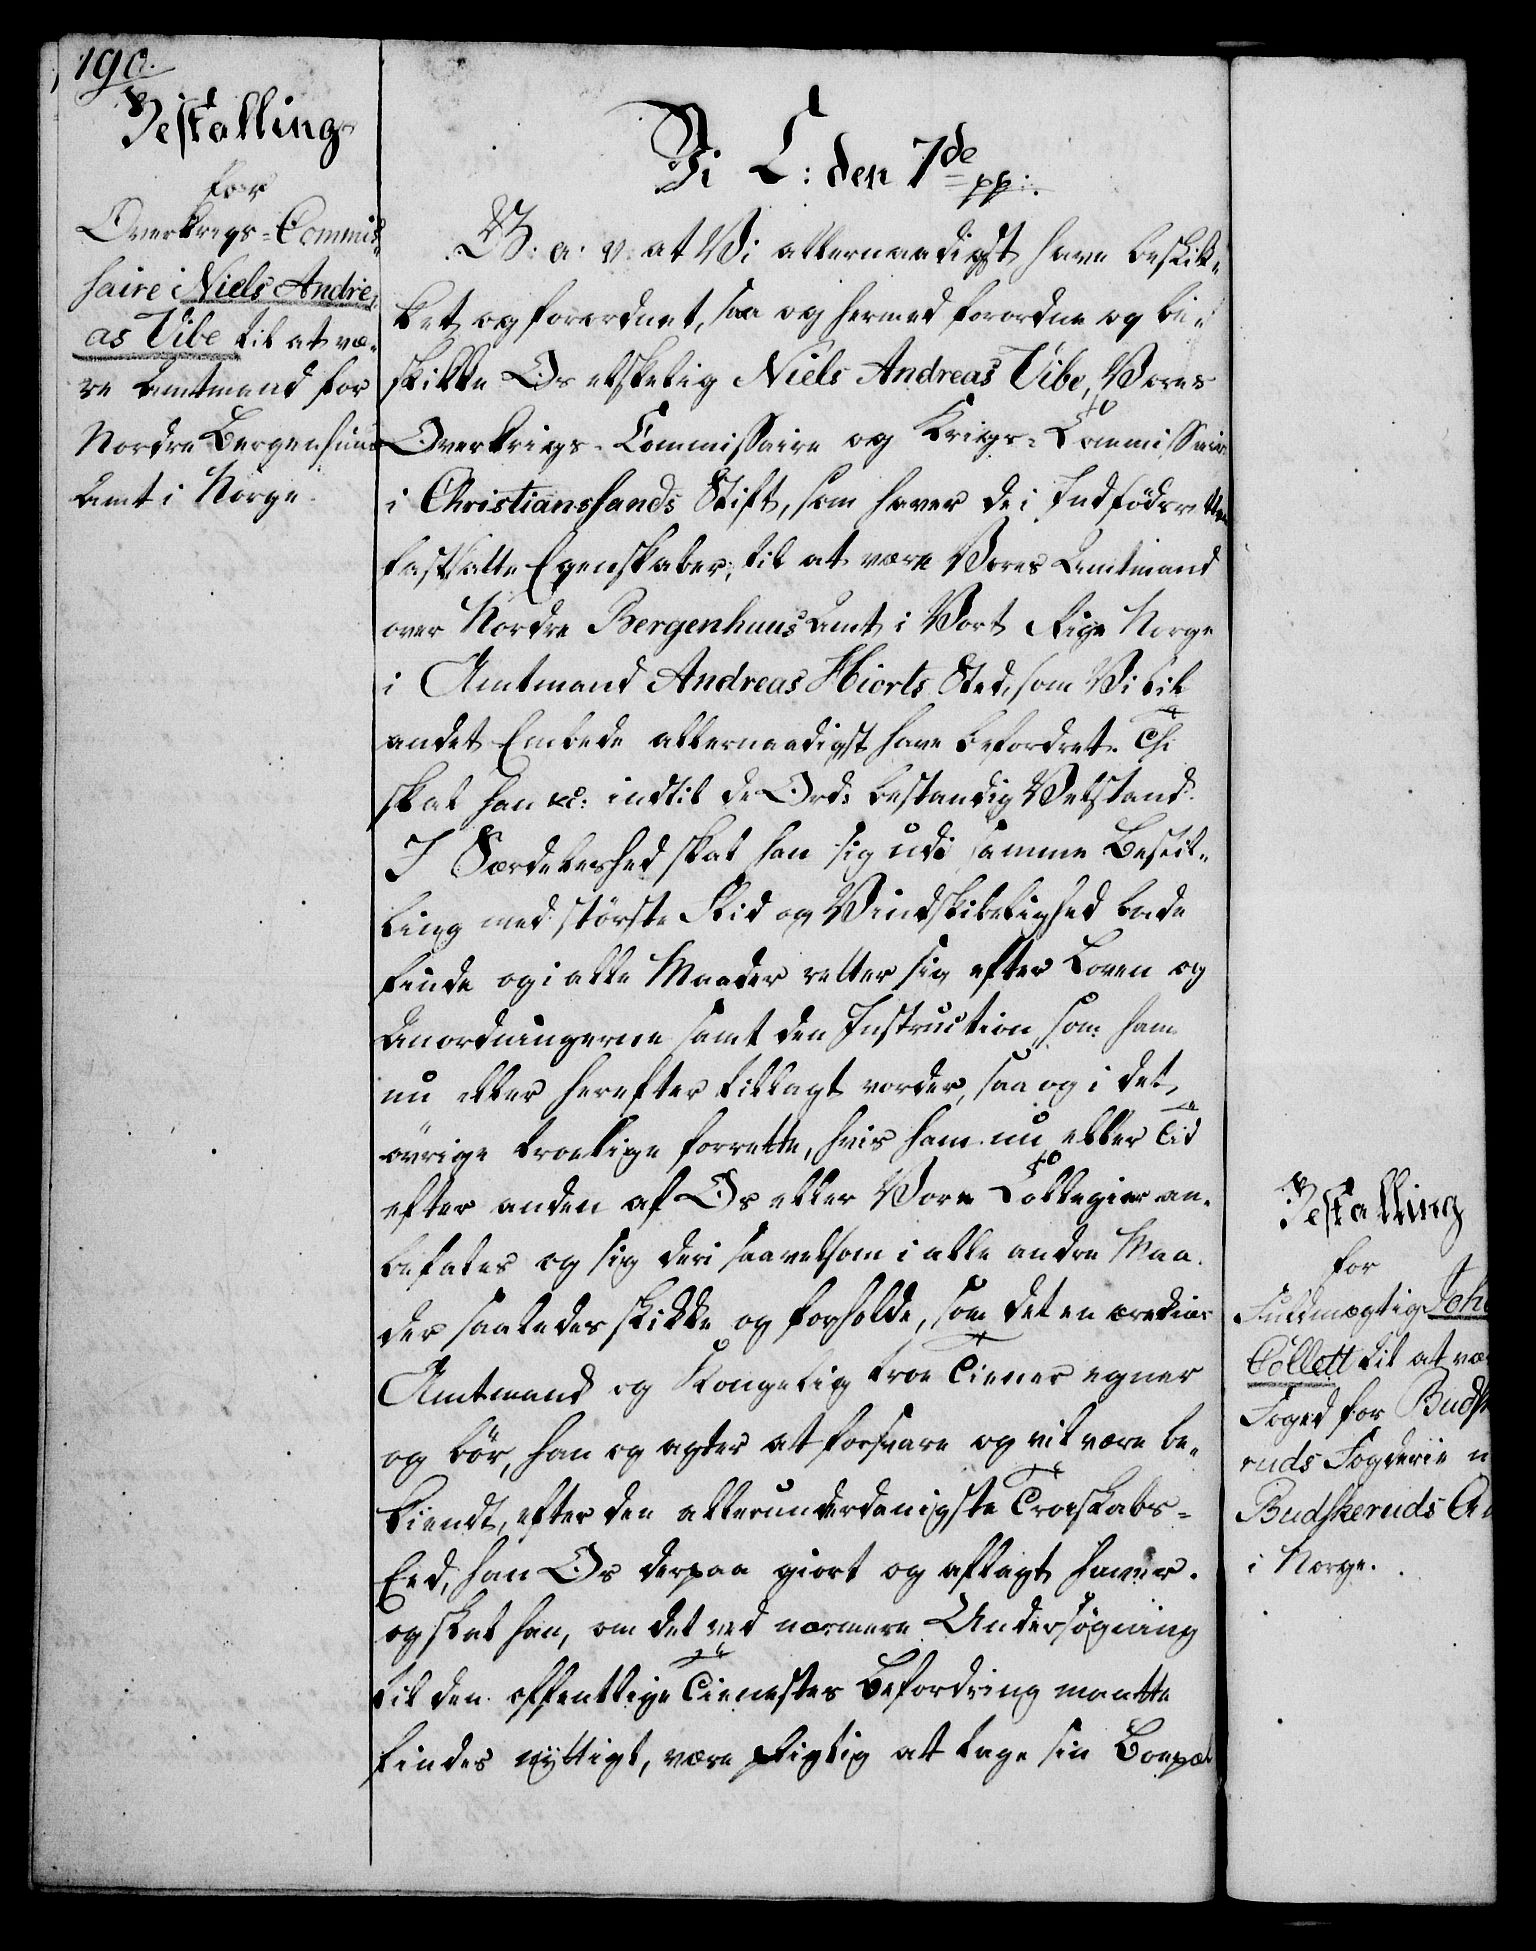 190.
Bestalling
for
Overkrigs-Commis-
saire Niels Andre-
as Vibe til at væ-
re Amtmand for
Nordre Bergenhuus
Amt i Norge.
Vi C: den 7de pp:.
G: a: v: at Vi allernaadigst have beskik-
ket og forordnet, saa og hermed forordne og be-
skikke Os elskelig Niels Andreas Vibe, Vores
Overkrigs-Commissaire og Krigs-Commissair
i Christianssands Stift, som haver de i Indfødsretten
fastsatte Egenskaber; til at være Vores Amtmand
over Nordre Bergenhuus Amt i Vort Rige Norge
i Amtmand Andreas Hiorts Sted, som Vi til
andet Embede allernaadigst have befordret. Thi
skal han &c: indtil de Ord: bestandig Velstand.
I Særdeleshed skal han sig udi samme Bestil-
ling med störste Flid og Vindskibelighed lade
finde og i alle Maader retter sig efter Loven og
Anordningerne samt den Instruction, som ham
nu eller herefter tillagt vorder, saa og i det
övrige troelige forrette, hvis ham nu eller Tid
efter anden af Os eller Vore Collegier an-
befales og sig deri saavelsom i alle andre Maa-
der saaledes skikke og forholde, som det en ærekier
Amtmand og Kongelig troe Tiener egner
og bör, han og agter at forsvare og vil være be-
kiendt, efter den allerunderdanigste Troeskabs-
Eed, han Os derpaa giort og aflagt haver.
og skal han, om det ved nærmere Undersögning
til den offentlige Tienestes Befordring maatte
findes nyttigt, være pligtig at tage sin Boepæl
Bestalling
for
Fuldmægtig Joh
Collett til at væ
Foged for Budsk
ruds Fogderie
Budskeruds A
i Norge.